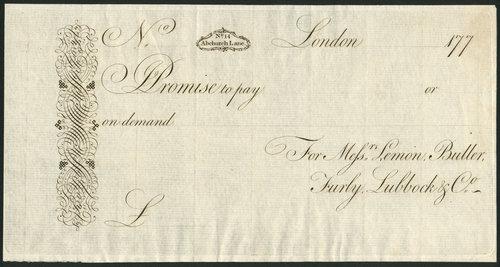 No.
No. 14
Abchurch Lane.
London 177
I Promise to pay or
on demand
For Messrs. Lemon, Buller,
Furly, Lubbock & Co.
£